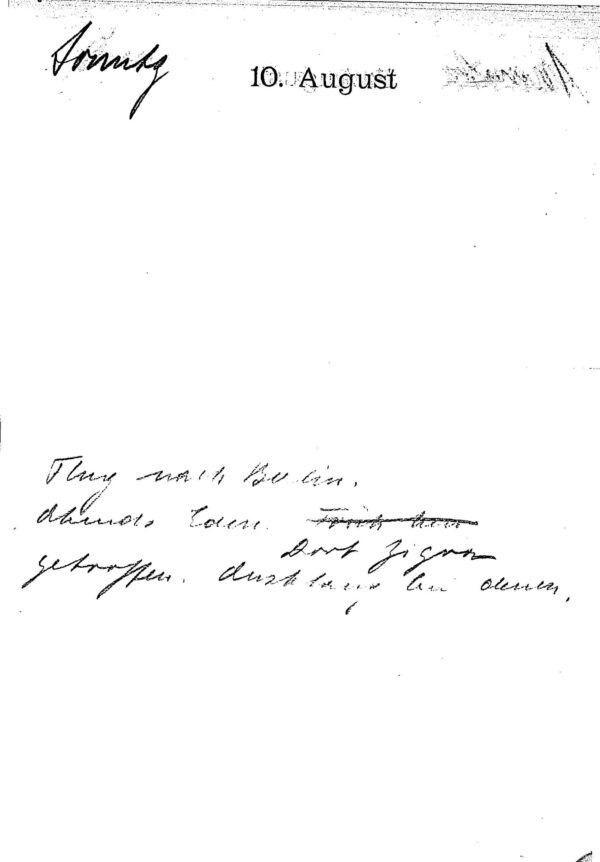 Sonntag
10. August
Flug nach Berlin.
Abends Eden.
Dort
getroffen. Ausklang bei denen.